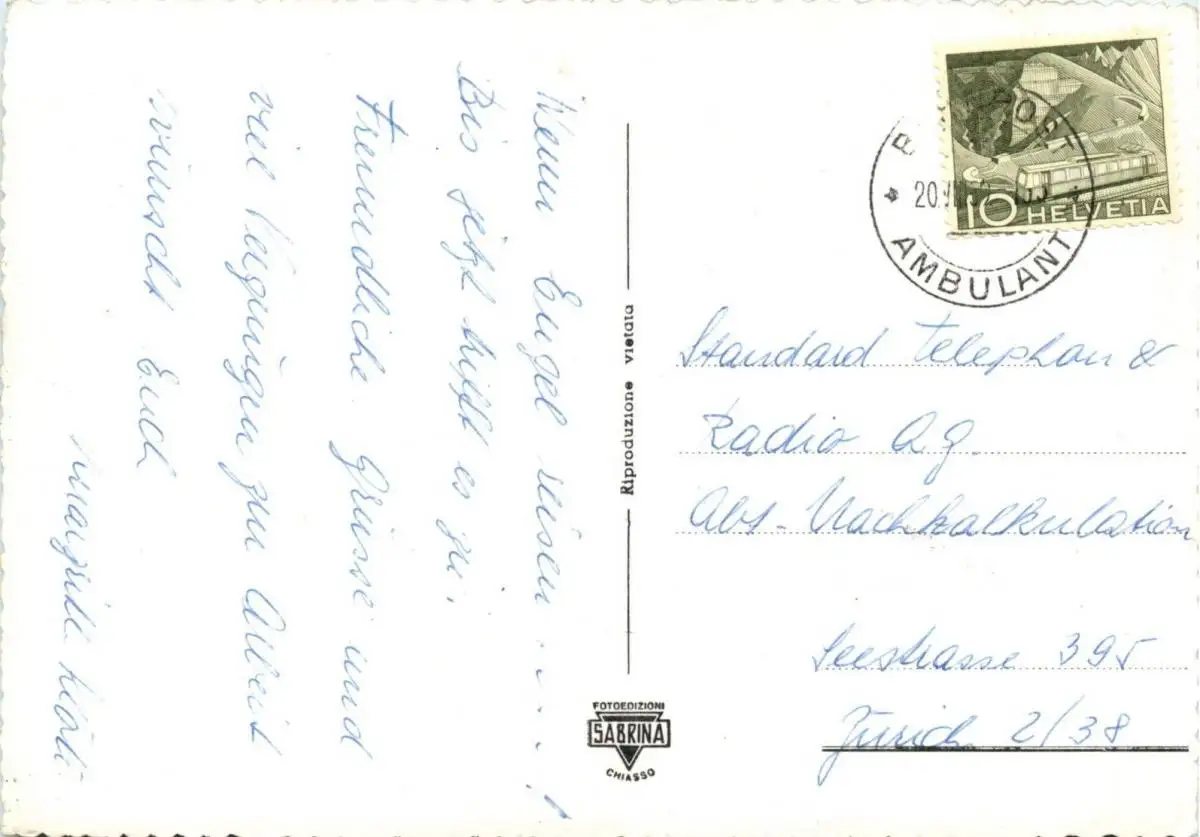 Wenn Engel reisen . . . !
Bis jetzt trifft es zu.
Freundliche Grüsse und
viel Vergnügen zur Arbeit
wünscht Euch
Margrith
Riproduzione vietata
FOTOEDIZIONI
SABRINA
CHIASSO
10 HELVETIA
AMBULANT
Standard Telephon &
Radio AG.
Abt - Nachkalkulation
Seestrasse 395
Zürich 2/38